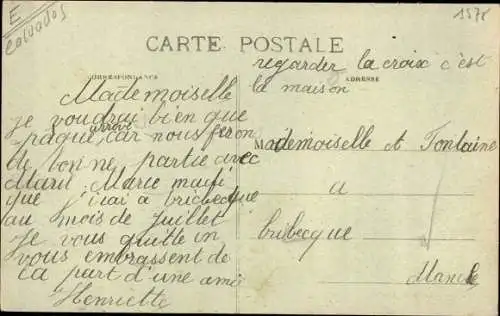 E
calvados
1578
CARTE POSTALE
CORRESPONDANCE
ADRESSE
regarder la croix c'est
la maison
Mademoiselle
je voudrai bien que
paque arrive car nous feron
de bonne partie avec
Marie
que j'irai a bricbecque
au mois de juillet
Je vous quitte in
vous embrassent de
la part d'une amie
Henriette
Mademoiselle et Fontaine
a
bribecque
Manche